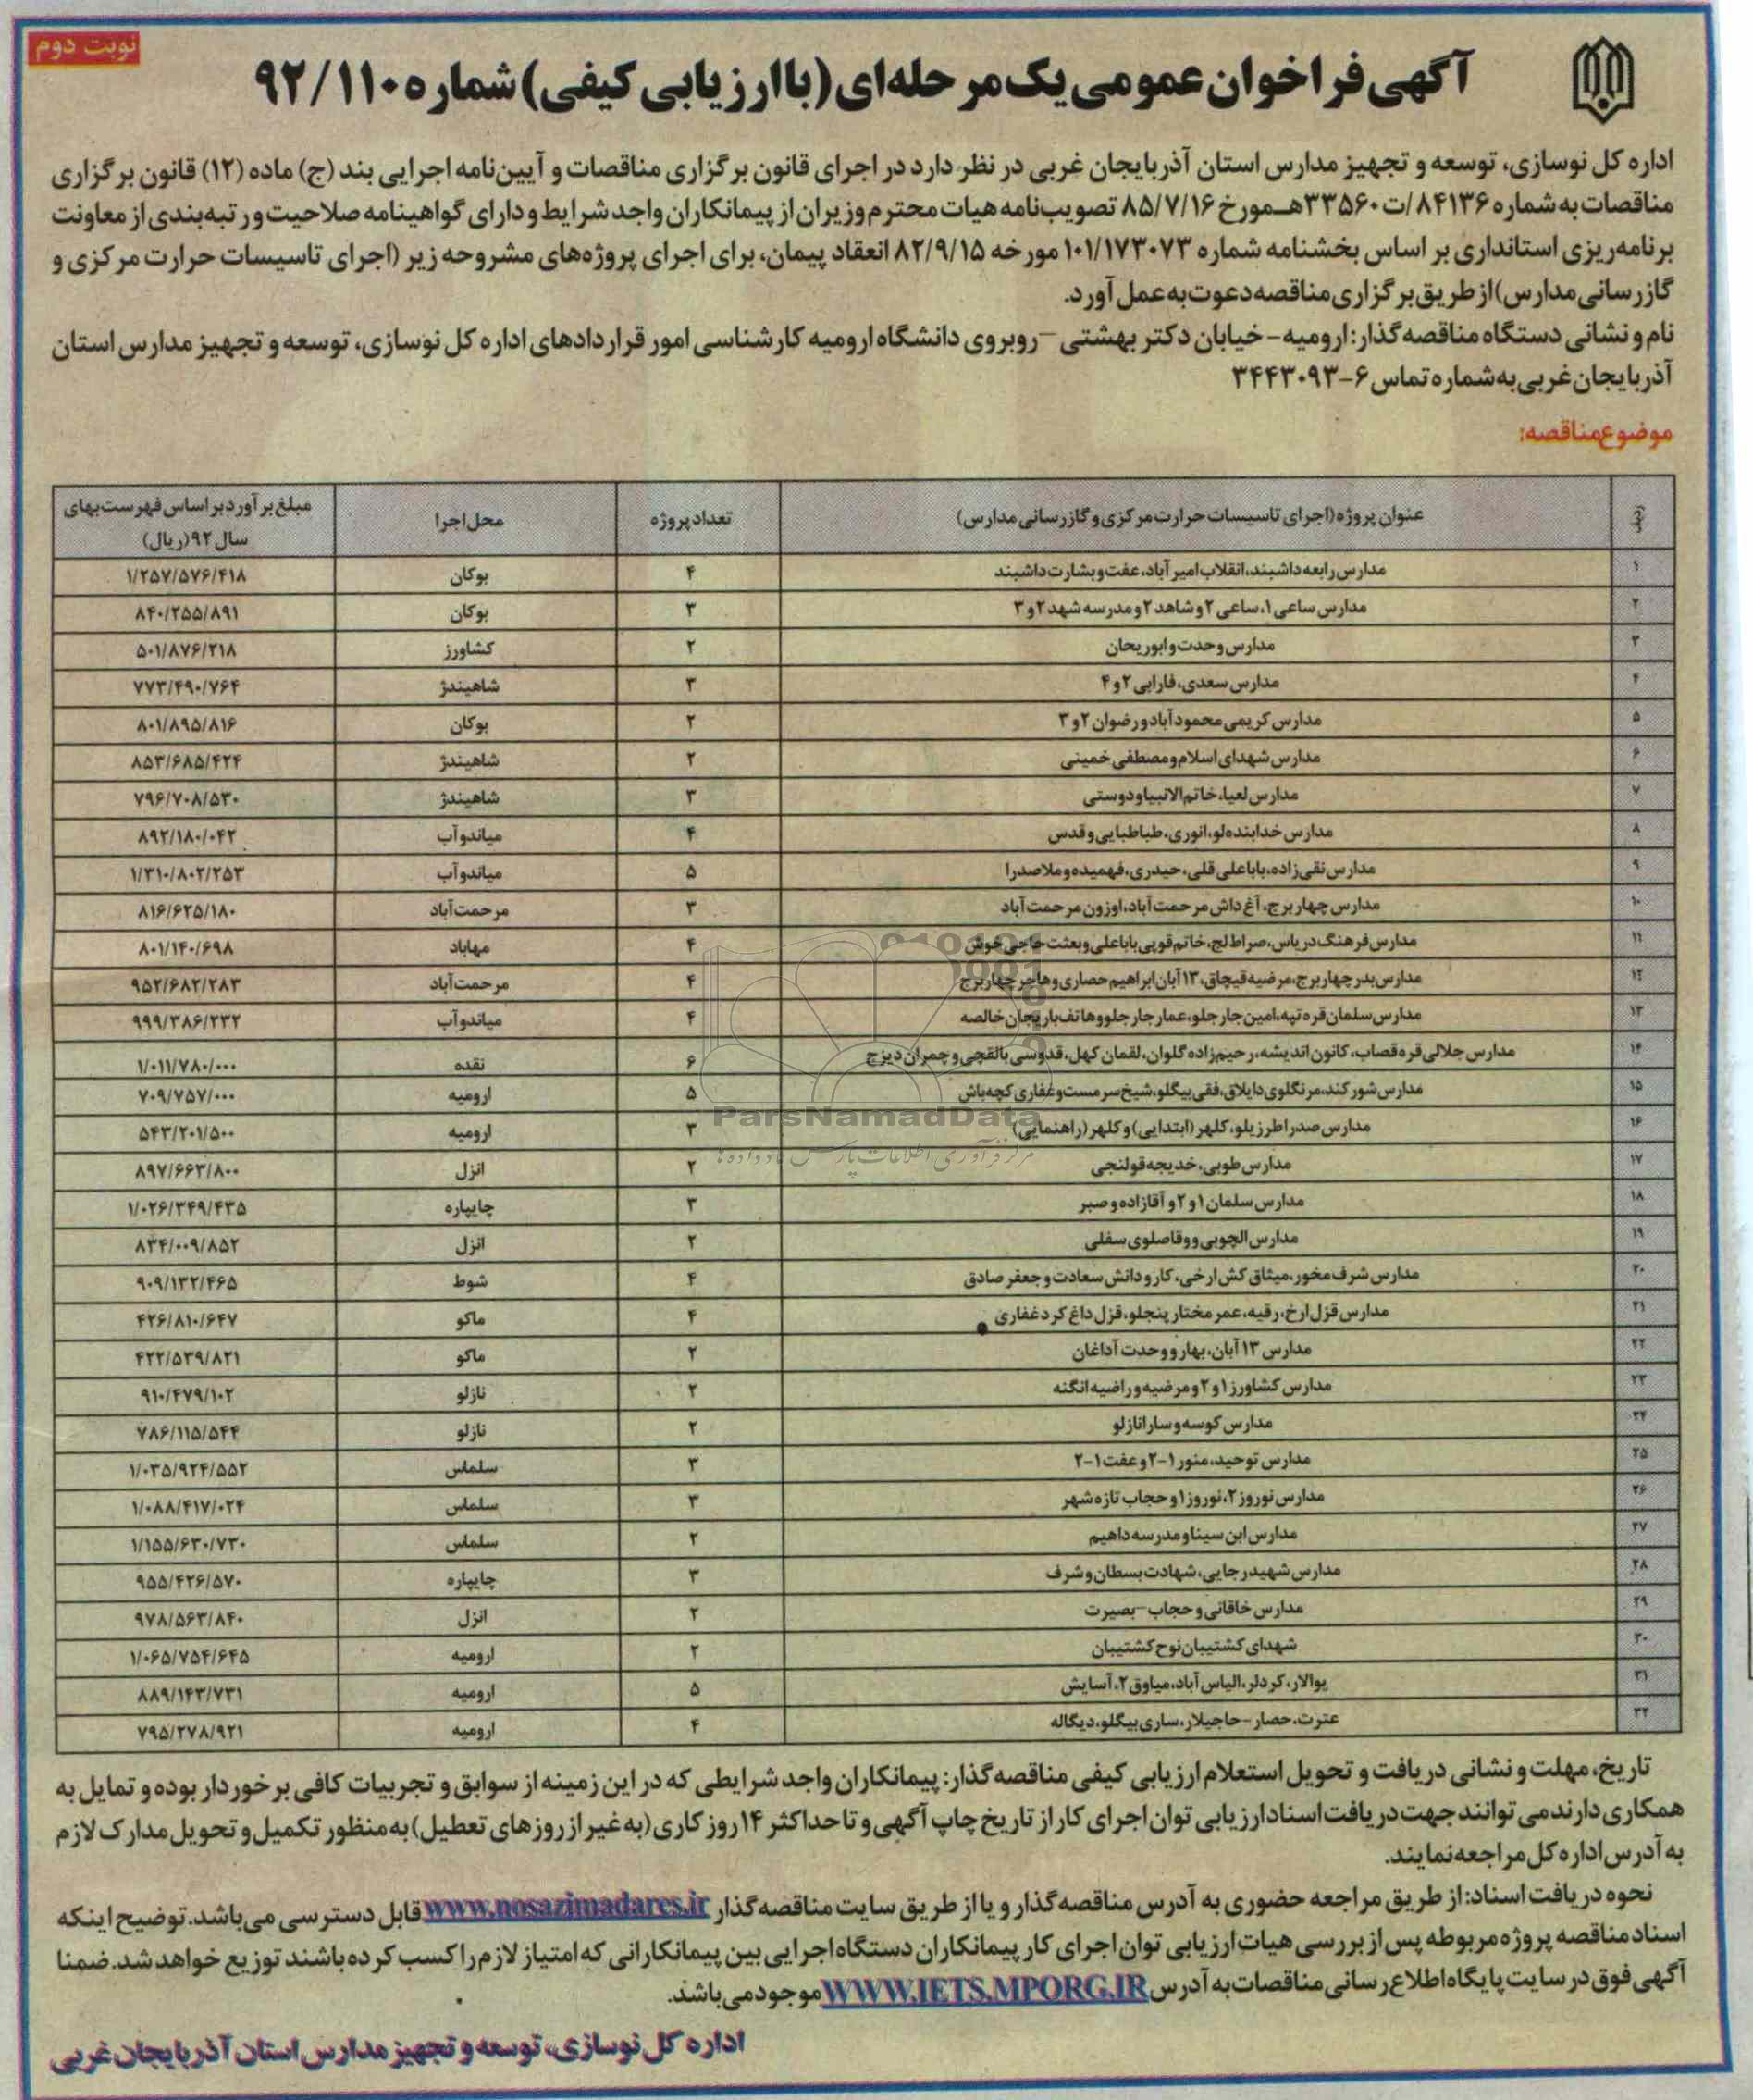 نوبت دوم
آگهی فراخوان عمومی یک مرحله‌ای (با ارزیابی کیفی) شماره ۹۲/۱۱۰
اداره کل نوسازی، توسعه و تجهیز مدارس استان آذربایجان غربی در نظر دارد در اجرای قانون برگزاری مناقصات و آیین‌نامه اجرایی بند (ج) ماده (۱۲) قانون برگزاری
مناقصات به شماره ۸۴۱۳۶/ت۳۳۵۶۰هـ مورخ ۸۵/۷/۱۶ تصویب‌نامه هیات محترم وزیران از پیمانکاران واجد شرایط و دارای گواهینامه صلاحیت و رتبه‌بندی از معاونت
برنامه‌ریزی استانداری بر اساس بخشنامه شماره ۱۰۱/۱۷۳۰۷۳ مورخه ۸۲/۹/۱۵ انعقاد پیمان، برای اجرای پروژه‌های مشروحه زیر (اجرای تاسیسات حرارت مرکزی و
گازرسانی مدارس) از طریق برگزاری مناقصه دعوت به عمل آورد.
نام و نشانی دستگاه مناقصه‌گذار: ارومیه - خیابان دکتر بهشتی - روبروی دانشگاه ارومیه کارشناسی امور قراردادهای اداره کل نوسازی، توسعه و تجهیز مدارس استان
آذربایجان غربی به شماره تماس ۶-۳۴۴۳۰۹۳
موضوع مناقصه:
ردیف عنوان پروژه (اجرای تاسیسات حرارت مرکزی و گازرسانی مدارس) تعداد پروژه محل اجرا مبلغ برآورد بر اساس فهرست بهای سال ۹۲ (ریال)
۱ مدارس رابعه داشبند، انقلاب امیرآباد، عفت و بشارت داشبند ۴ بوکان ۱/۲۵۷/۵۷۶/۴۱۸
۲ مدارس ساعی ۱، ساعی ۲ و شاهد ۲ و مدرسه شهد ۲ و ۳ ۳ بوکان ۸۴۰/۲۵۵/۸۹۱
۳ مدارس وحدت و ابوریحان ۲ کشاورز ۵۰۱/۸۷۶/۲۱۸
۴ مدارس سعدی، فارابی ۲ و ۴ ۳ شاهیندژ ۷۷۳/۴۹۰/۷۶۴
۵ مدارس کریمی محمودآباد و رضوان ۲ و ۳ ۲ بوکان ۸۰۱/۸۹۵/۸۱۶
۶ مدارس شهدای اسلام و مصطفی خمینی ۲ شاهیندژ ۸۵۳/۶۸۵/۴۲۴
۷ مدارس لعیا، خاتم الانبیا و دوستی ۳ شاهیندژ ۷۹۶/۷۰۸/۵۳۰
۸ مدارس خدابنده‌لو، انوری، طباطبایی و قدس ۴ میاندوآب ۸۹۲/۱۸۰/۰۴۲
۹ مدارس نقی‌زاده، باباعلی قلی، حیدری، فهمیده و ملاصدرا ۵ میاندوآب ۱/۳۱۰/۸۰۲/۲۵۳
۱۰ مدارس چهاربرج، آغ داش مرحمت‌آباد، اوزون مرحمت‌آباد ۳ مرحمت‌آباد ۸۱۶/۶۲۵/۱۸۰
۱۱ مدارس فرهنگ دریاس، صراط لج، خاتم قوپی باباعلی و بعثت حاجی خوش ۴ مهاباد ۸۰۱/۱۴۰/۶۹۸
۱۲ مدارس بدر چهاربرج، مرضیه قپچاق، ۱۳ آبان ابراهیم حصاری و هاجر چهاربرج ۴ مرحمت‌آباد ۹۵۲/۶۸۲/۲۸۳
۱۳ مدارس سلمان قره تپه، امین جارجلو، عمار جارجلو و هاتف باریجان خالصه ۴ میاندوآب ۹۹۹/۳۸۶/۲۳۲
۱۴ مدارس جلالی قره قصاب، کانون اندیشه، رحیم‌زاده گلوان، لقمان کهل، قدوسی بالقچی و چمران دیزج ۶ نقده ۱/۰۱۱/۷۸۰/۰۰۰
۱۵ مدارس شورکند، مرنگلوی دایلاق، فقی‌بیگلو، شیخ سرمست و غفاری کچه‌باش ۵ ارومیه ۷۰۹/۷۵۷/۰۰۰
۱۶ مدارس صدرا طرزیلو، کلهر (ابتدایی) و کلهر (راهنمایی) ۳ ارومیه ۵۴۳/۲۰۱/۵۰۰
۱۷ مدارس طوبی، خدیجه قولنجی ۲ انزل ۸۹۷/۶۶۳/۸۰۰
۱۸ مدارس سلمان ۱ و ۲ و آقازاده و صبر ۳ چایپاره ۱/۰۲۶/۳۴۹/۴۳۵
۱۹ مدارس الچوبی و وقاصلوی سفلی ۲ انزل ۸۳۴/۰۰۹/۸۵۲
۲۰ مدارس شرف مخور، میثاق کش ارخی، کار و دانش سعادت و جعفر صادق ۴ شوط ۹۰۹/۱۳۲/۴۶۵
۲۱ مدارس قزل ارخ، رقیه، عمر مختار پنجلو، قزل داغ کرد غفاری ۴ ماکو ۴۲۶/۸۱۰/۶۴۷
۲۲ مدارس ۱۳ آبان، بهار و وحدت آداغان ۲ ماکو ۴۲۲/۵۳۹/۸۲۱
۲۳ مدارس کشاورز ۱ و ۲ و مرضیه و راضیه انگنه ۲ نازلو ۹۱۰/۴۷۹/۱۰۲
۲۴ مدارس کوسه و سارا نازلو ۲ نازلو ۷۸۶/۱۱۵/۵۴۴
۲۵ مدارس توحید، منور ۱-۲ و عفت ۱-۲ ۳ سلماس ۱/۰۳۵/۹۲۴/۵۵۲
۲۶ مدارس نوروز ۲، نوروز ۱ و حجاب تازه شهر ۳ سلماس ۱/۰۸۸/۴۱۷/۰۲۴
۲۷ مدارس ابن سینا و مدرسه داهیم ۲ سلماس ۱/۱۵۵/۶۳۰/۷۳۰
۲۸ مدارس شهید رجایی، شهادت بسطان و شرف ۳ چایپاره ۹۵۵/۴۲۶/۵۷۰
۲۹ مدارس خاقانی و حجاب - بصیرت ۲ انزل ۹۷۸/۵۶۳/۸۴۰
۳۰ شهدای کشتیبان نوح کشتیبان ۲ ارومیه ۱/۰۶۵/۷۵۴/۶۴۵
۳۱ بوالار، کردلر، الیاس آباد، میاوق ۲، آسایش ۵ ارومیه ۸۸۹/۱۴۳/۷۳۱
۳۲ عترت، حصار - حاجیلار، ساری بیگلو، دیگاله ۴ ارومیه ۷۹۵/۲۷۸/۹۲۱
ParsNamadData
تاریخ، مهلت و نشانی دریافت و تحویل استعلام ارزیابی کیفی مناقصه‌گذار: پیمانکاران واجد شرایطی که در این زمینه از سوابق و تجربیات کافی برخوردار بوده و تمایل به
همکاری دارند می‌توانند جهت دریافت اسناد ارزیابی توان اجرای کار از تاریخ چاپ آگهی و تا حداکثر ۱۴ روز کاری (به غیر از روزهای تعطیل) به منظور تکمیل و تحویل مدارک لازم
به آدرس اداره کل مراجعه نمایند.
نحوه دریافت اسناد: از طریق مراجعه حضوری به آدرس مناقصه‌گذار و یا از طریق سایت مناقصه‌گذار www.nosazimadares.ir قابل دسترسی می‌باشد. توضیح اینکه
اسناد مناقصه پروژه مربوطه پس از بررسی هیات ارزیابی توان اجرای کار پیمانکاران دستگاه اجرایی بین پیمانکارانی که امتیاز لازم را کسب کرده باشند توزیع خواهد شد. ضمنا
آگهی فوق در سایت پایگاه اطلاع رسانی مناقصات به آدرس WWW.IETS.MPORG.IR موجود می‌باشد.
اداره کل نوسازی، توسعه و تجهیز مدارس استان آذربایجان غربی